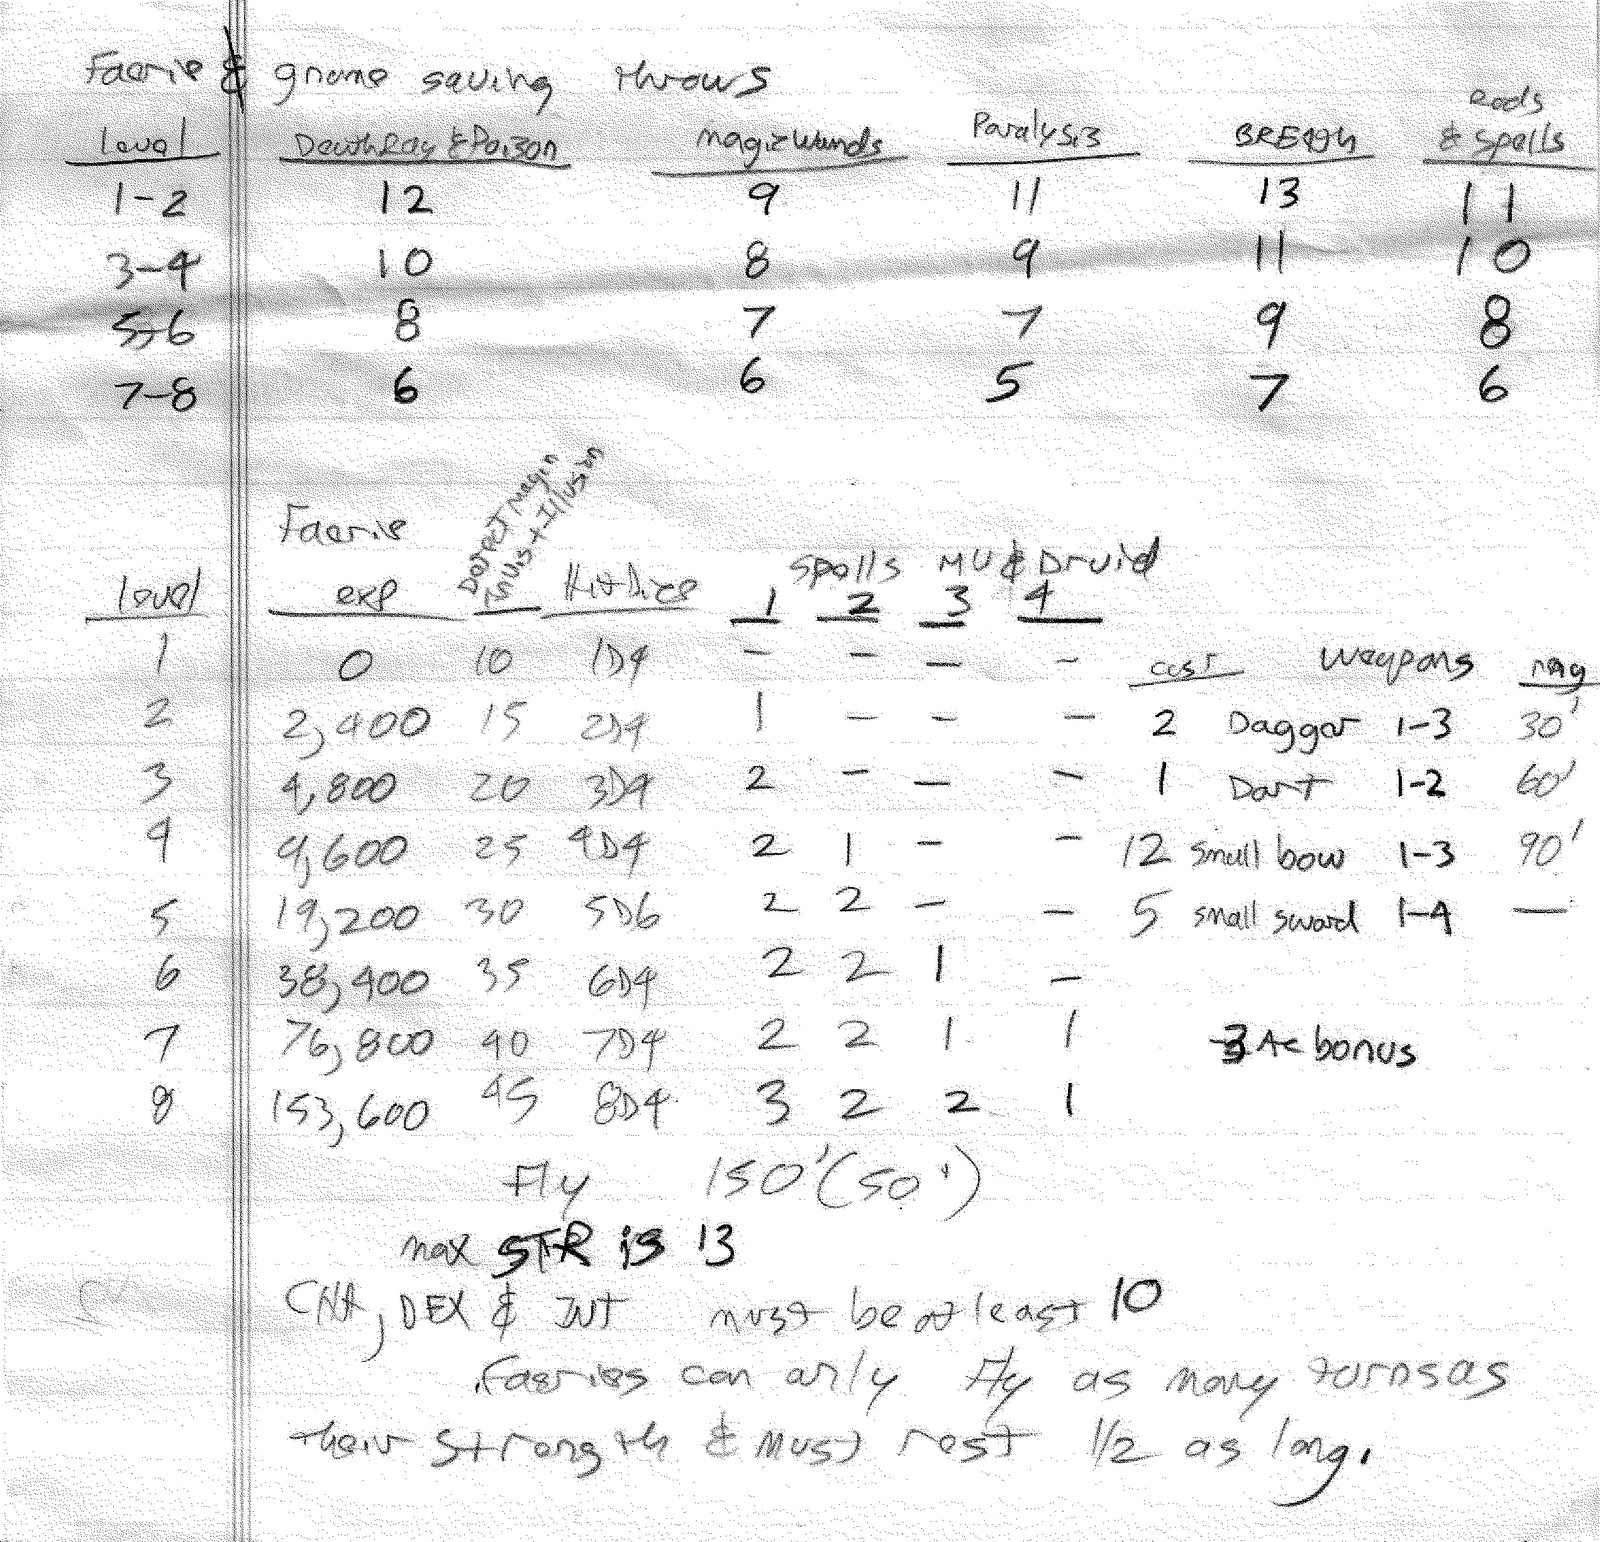 Faerie & gnome saving throws
level Death Ray & Poison magic wands Paralysis BREATH Rods & Spells
1-2 12 9 11 13 11
3-4 10 8 9 11 10
5-6 8 7 7 9 8
7-8 6 6 5 7 6
Faerie
Detect Magic
Invis. + Illusion
Spells MU & Druid
level exp Hit Dice 1 2 3 4
1 0 10 1D4 - - - -
cost weapons rng
2 2,400 15 2D4 1 - - -
2 Daggar 1-3 30'
3 4,800 20 3D4 2 - - -
1 Dart 1-2 60'
4 9,600 25 4D4 2 1 - -
12 small bow 1-3 90'
5 19,200 30 5D6 2 2 - -
5 small sword 1-4 —
6 38,400 35 6D4 2 2 1 -
7 76,800 40 7D4 2 2 1 1
AC bonus
8 153,600 45 8D4 3 2 2 1
Fly 150' (50')
max STR is 13
CHA, DEX & INT must be at least 10
Faeries can only Fly as many turns as
their Strength & must rest 1/2 as long.